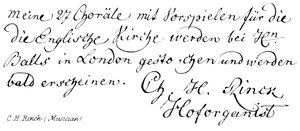 meine 27 Choräle mit Vorspielen für die
die Englische Kirche werden bei Hn
Balls in London gestochen und werden
bald erscheinen.
Ch. H. Rinck
Hoforganist
C. H. Rinck (Musician)